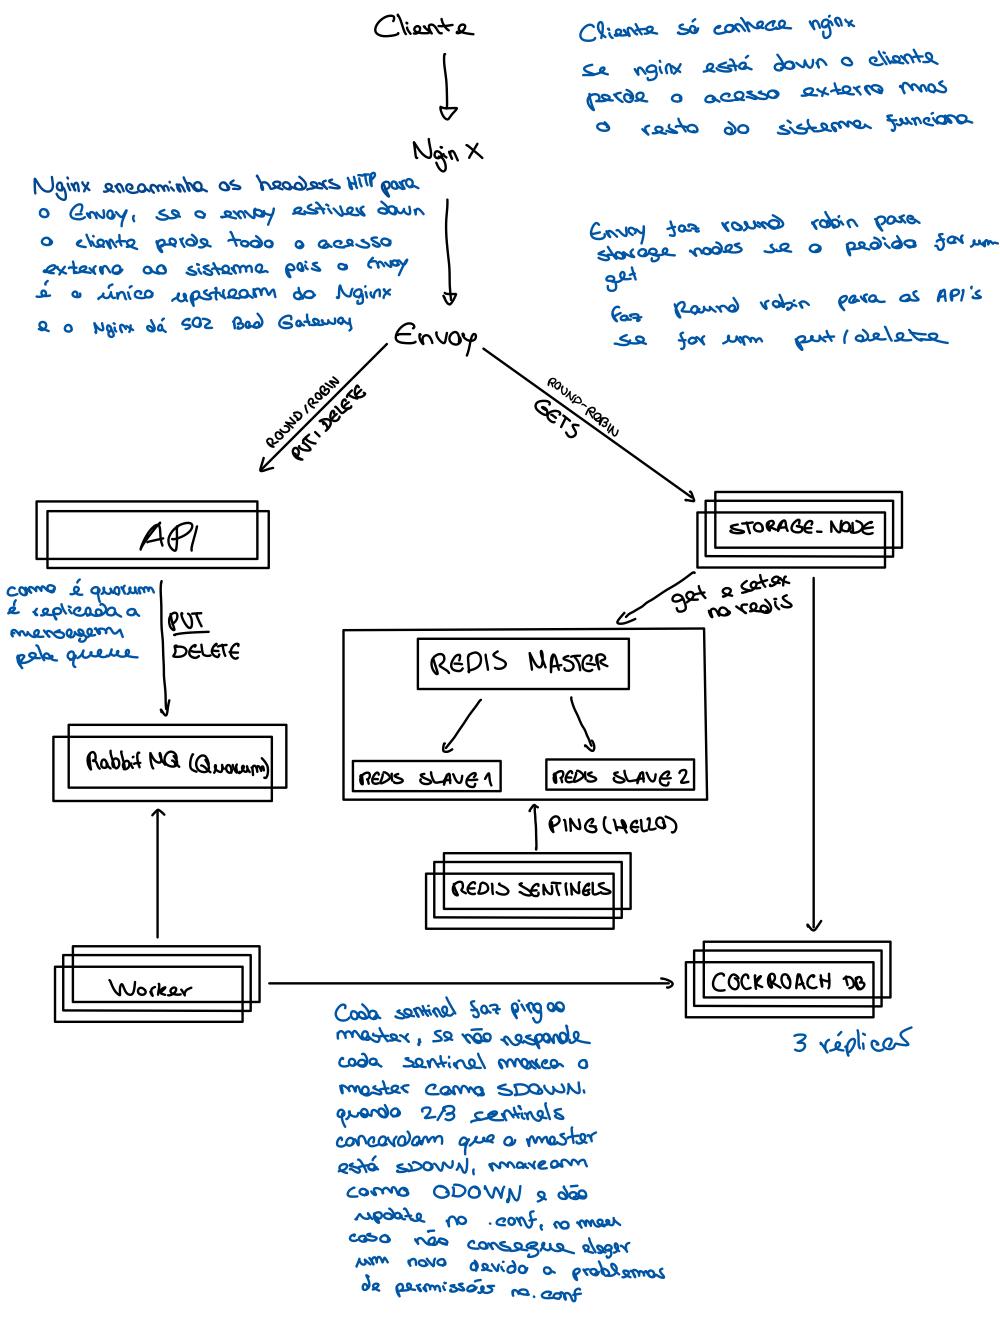 Cliente
Cliente só conhece nginx
se nginx está down o cliente
perde o acesso externo mas
o resto do sistema funciona
NginX
Nginx encaminha os headers HTTP para
o Envoy, se o envoy estiver down
o cliente perde todo o acesso
externo ao sistema pois o Envoy
é o único upstream do Nginx
e o Nginx dá 502 Bad Gateway
Envoy faz round robin para
storage nodes se o pedido for um
get
faz Round robin para as API's
se for um put/delete
Envoy
ROUND/ROBIN
PUT, DELETE
ROUND-ROBIN
GETS
API
STORAGE_NODE
como é quorum
é replicada a
mensagem
pela queue
PUT
DELETE
get e setex
no redis
REDIS MASTER
RabbitMQ (Quorum)
REDIS SLAVE 1
REDIS SLAVE 2
PING (HELLO)
REDIS SENTINELS
Worker
COCKROACH DB
3 réplicas
Cada sentinel faz ping ao
master, se não responde
cada sentinel marca o
master como SDOWN.
quando 2/3 sentinels
concordam que o master
está SDOWN, marcam
como ODOWN e dão
update no .conf, no meu
caso não consegue eleger
um novo devido a problemas
de permissões no .conf